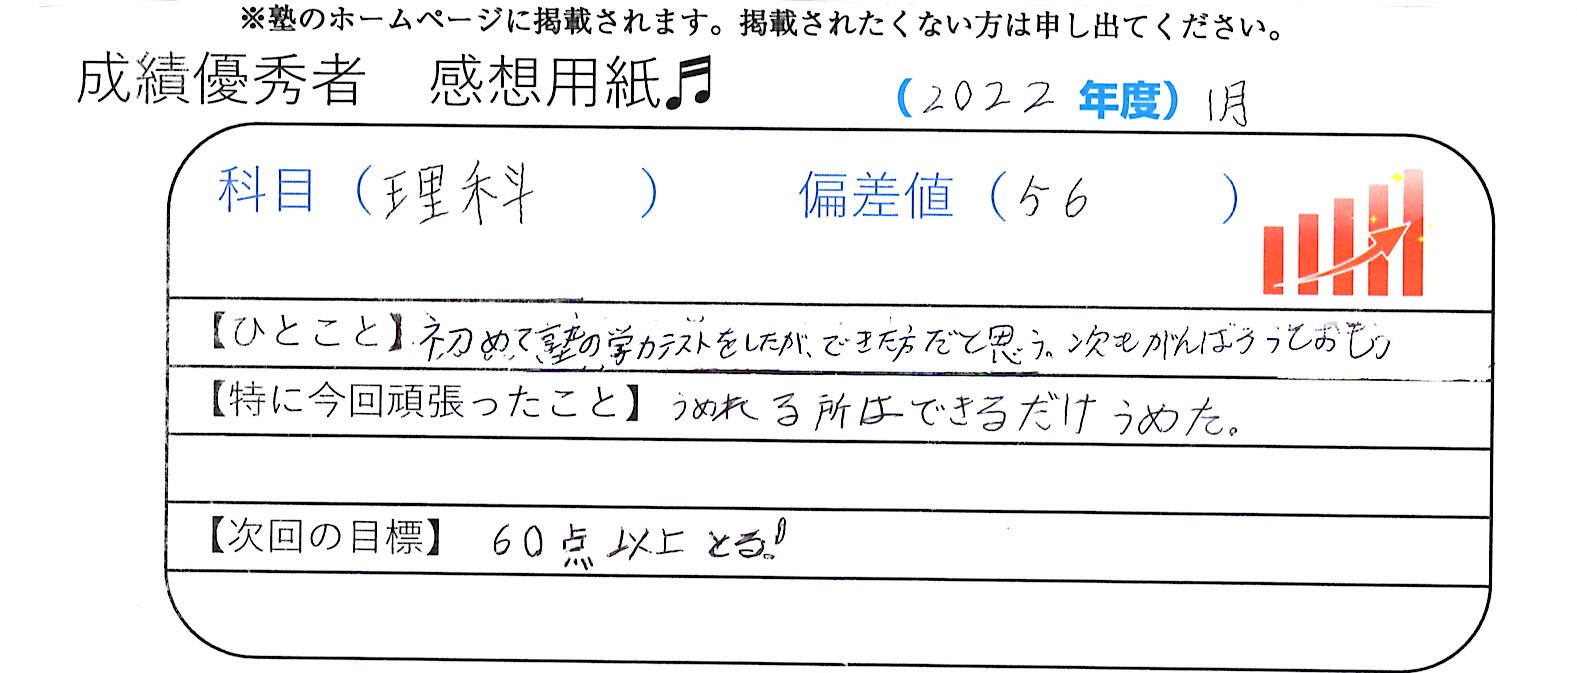 ※塾のホームページに掲載されます。掲載されたくない方は申し出てください。
成績優秀者　感想用紙♬
(2022年度) 1月
科目（理科　　） 偏差値（56　　）
【ひとこと】初めて塾の学力テストをしたが、できた方だと思う。次もがんばろうとおもう
【特に今回頑張ったこと】うめれる所はできるだけうめた。
【次回の目標】 60点以上とる!